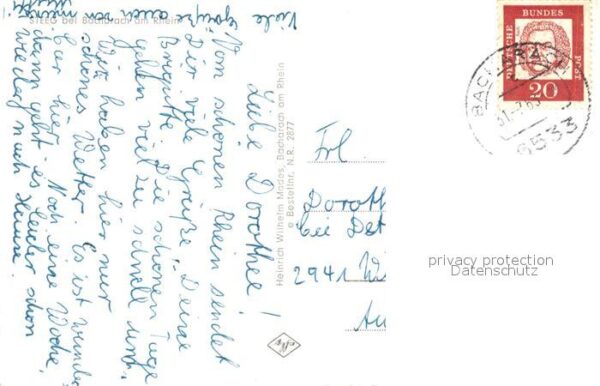 STEEG bei Bacharach am Rhein
Liebe Dorothee!
Vom schönen Rhein sendet
Dir viele Grüße Deine
Brigitte. Die schönen Tage
gehen viel zu schnell um.
Wir haben hier nur
schönes Wetter. Es ist wunder
bar hier. Noch eine Woche,
dann geht es leider schon
wieder nach Hause.
Viele
Grüße auch von
Heinrich Wilhelm Mades, Bacharach am Rhein
Bestellnr. N.R. 2877
DEUTSCHE BUNDES POST
20
BACHARACH
6533
Frl.
Doroth
bei Det
2941 Wi
privacy protection
Datenschutz